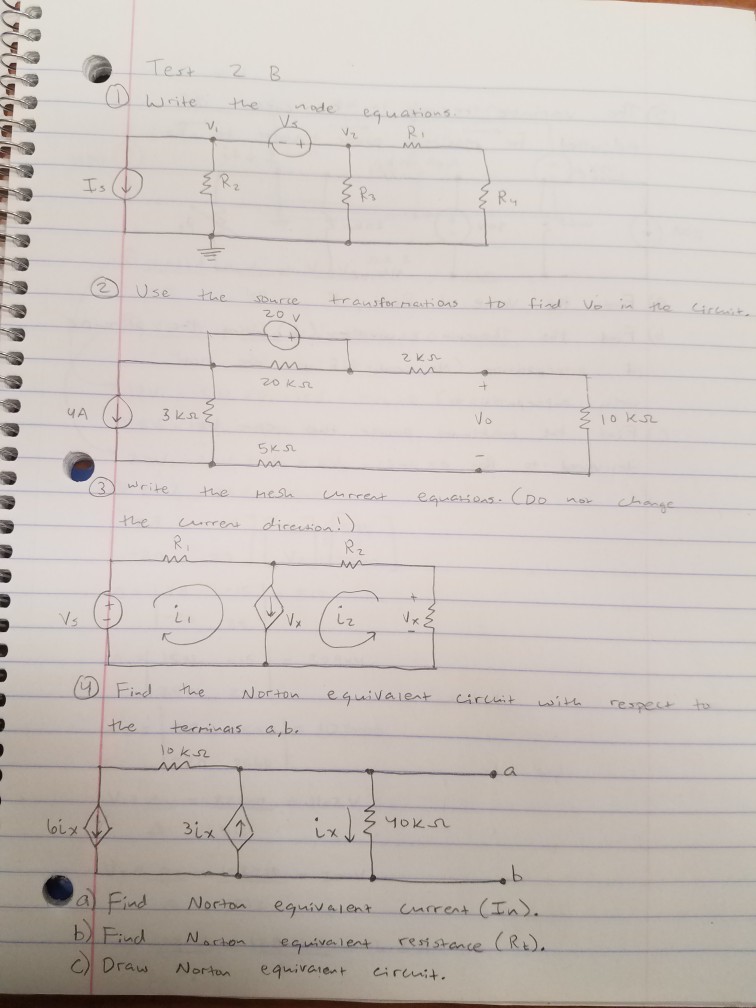 Test 2 B
① Write the node equations.
V₁ Vs V₂ R₁
- +
Is R₂ R₃ R₄
② Use the source transformations to find Vo in the circuit.
20 V
- +
2 KΩ
20 KΩ
+
4A 3 KΩ Vo 10 KΩ
5KΩ
-
③ Write the mesh current equations. (Do not change
the current direction!)
R₁ R₂
+
-
Vs i₁ Vx i₂ + Vx -
④ Find the Norton equivalent circuit with respect to
the terminals a,b.
10 KΩ
a
6ix 3ix ix 40KΩ
b
a) Find Norton equivalent current (In).
b) Find Norton equivalent resistance (Rt).
c) Draw Norton equivalent circuit.